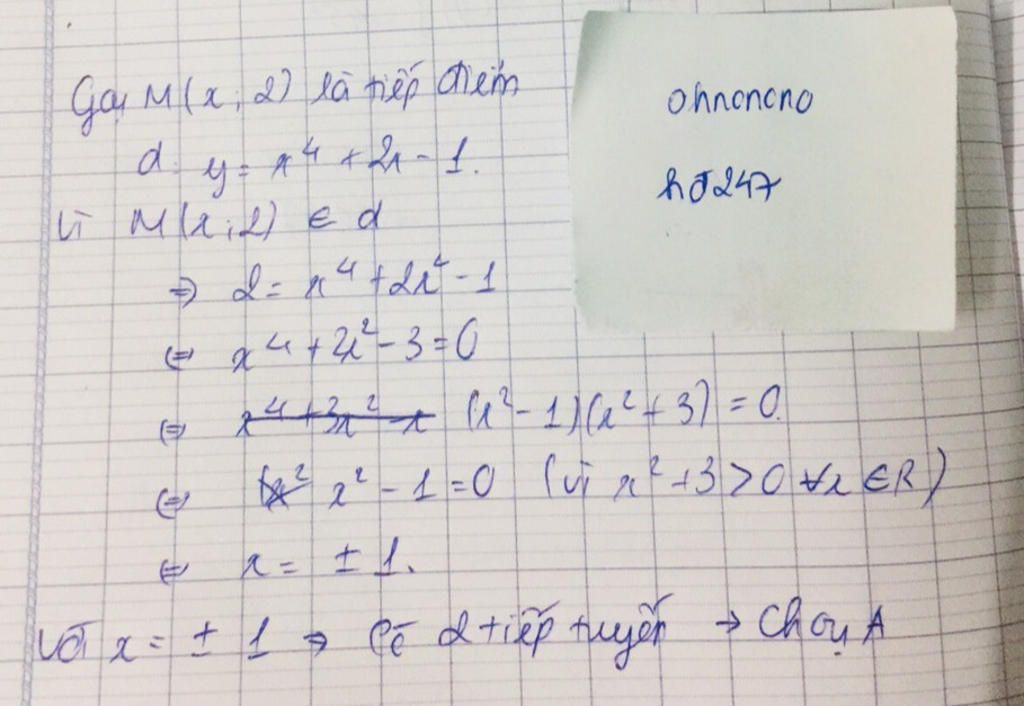 Gọi M(x; 2) là tiếp điểm
d: y = x⁴ + 2x - 1.
Vì M(x; 2) ∈ d
⇒ 2 = x⁴ + 2x² - 1
⇔ x⁴ + 2x² - 3 = 0
⇔ x⁴ + 3x² - x (x² - 1)(x² + 3) = 0.
⇔ (x² x² - 1 = 0 (vì x² + 3 > 0 ∀x ∈ R)
⇔ x = ± 1.
Với x = ± 1 ⇒ Có 2 tiếp tuyến → Chọn A
ohnonono
hđ247